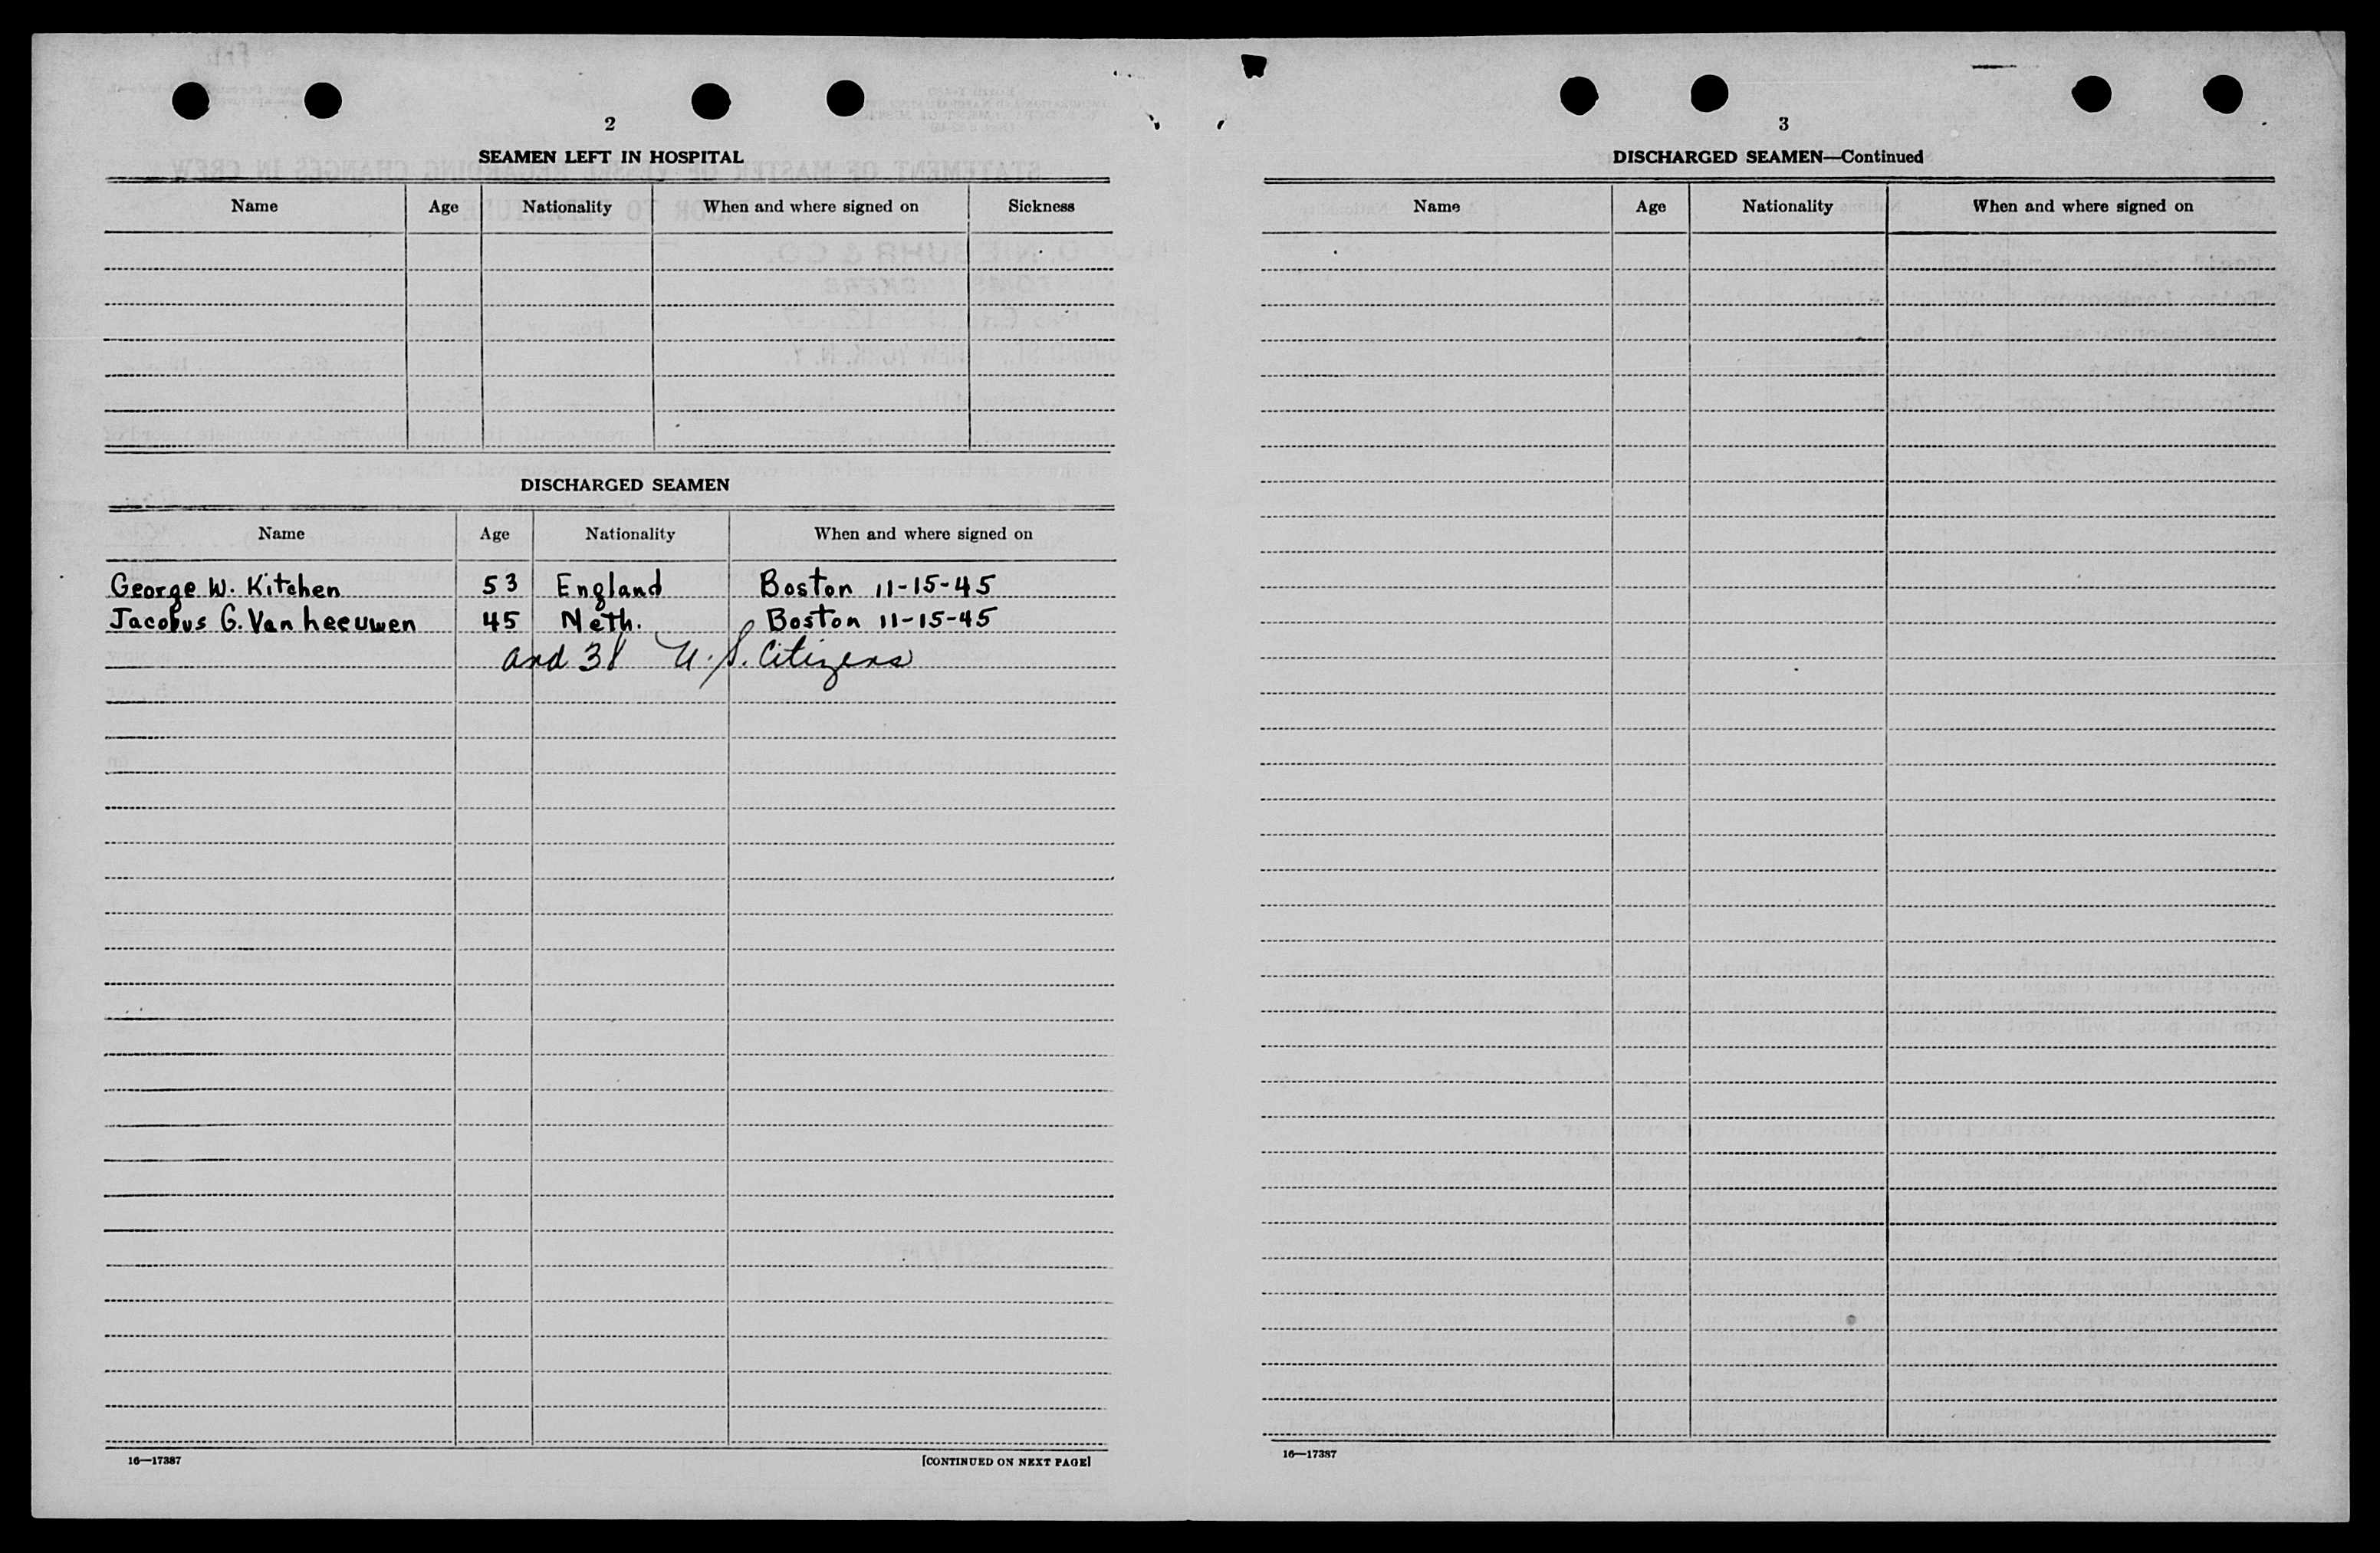 2
SEAMEN LEFT IN HOSPITAL
Name Age Nationality When and where signed on Sickness
DISCHARGED SEAMEN
Name Age Nationality When and where signed on
George W. Kitchen 53 England Boston 11-15-45
Jacobus G. Van heeuwen 45 Neth. Boston 11-15-45
and 38 U.S. Citizens
16—17387 [CONTINUED ON NEXT PAGE]
3
DISCHARGED SEAMEN—Continued
Name Age Nationality When and where signed on
16—17387